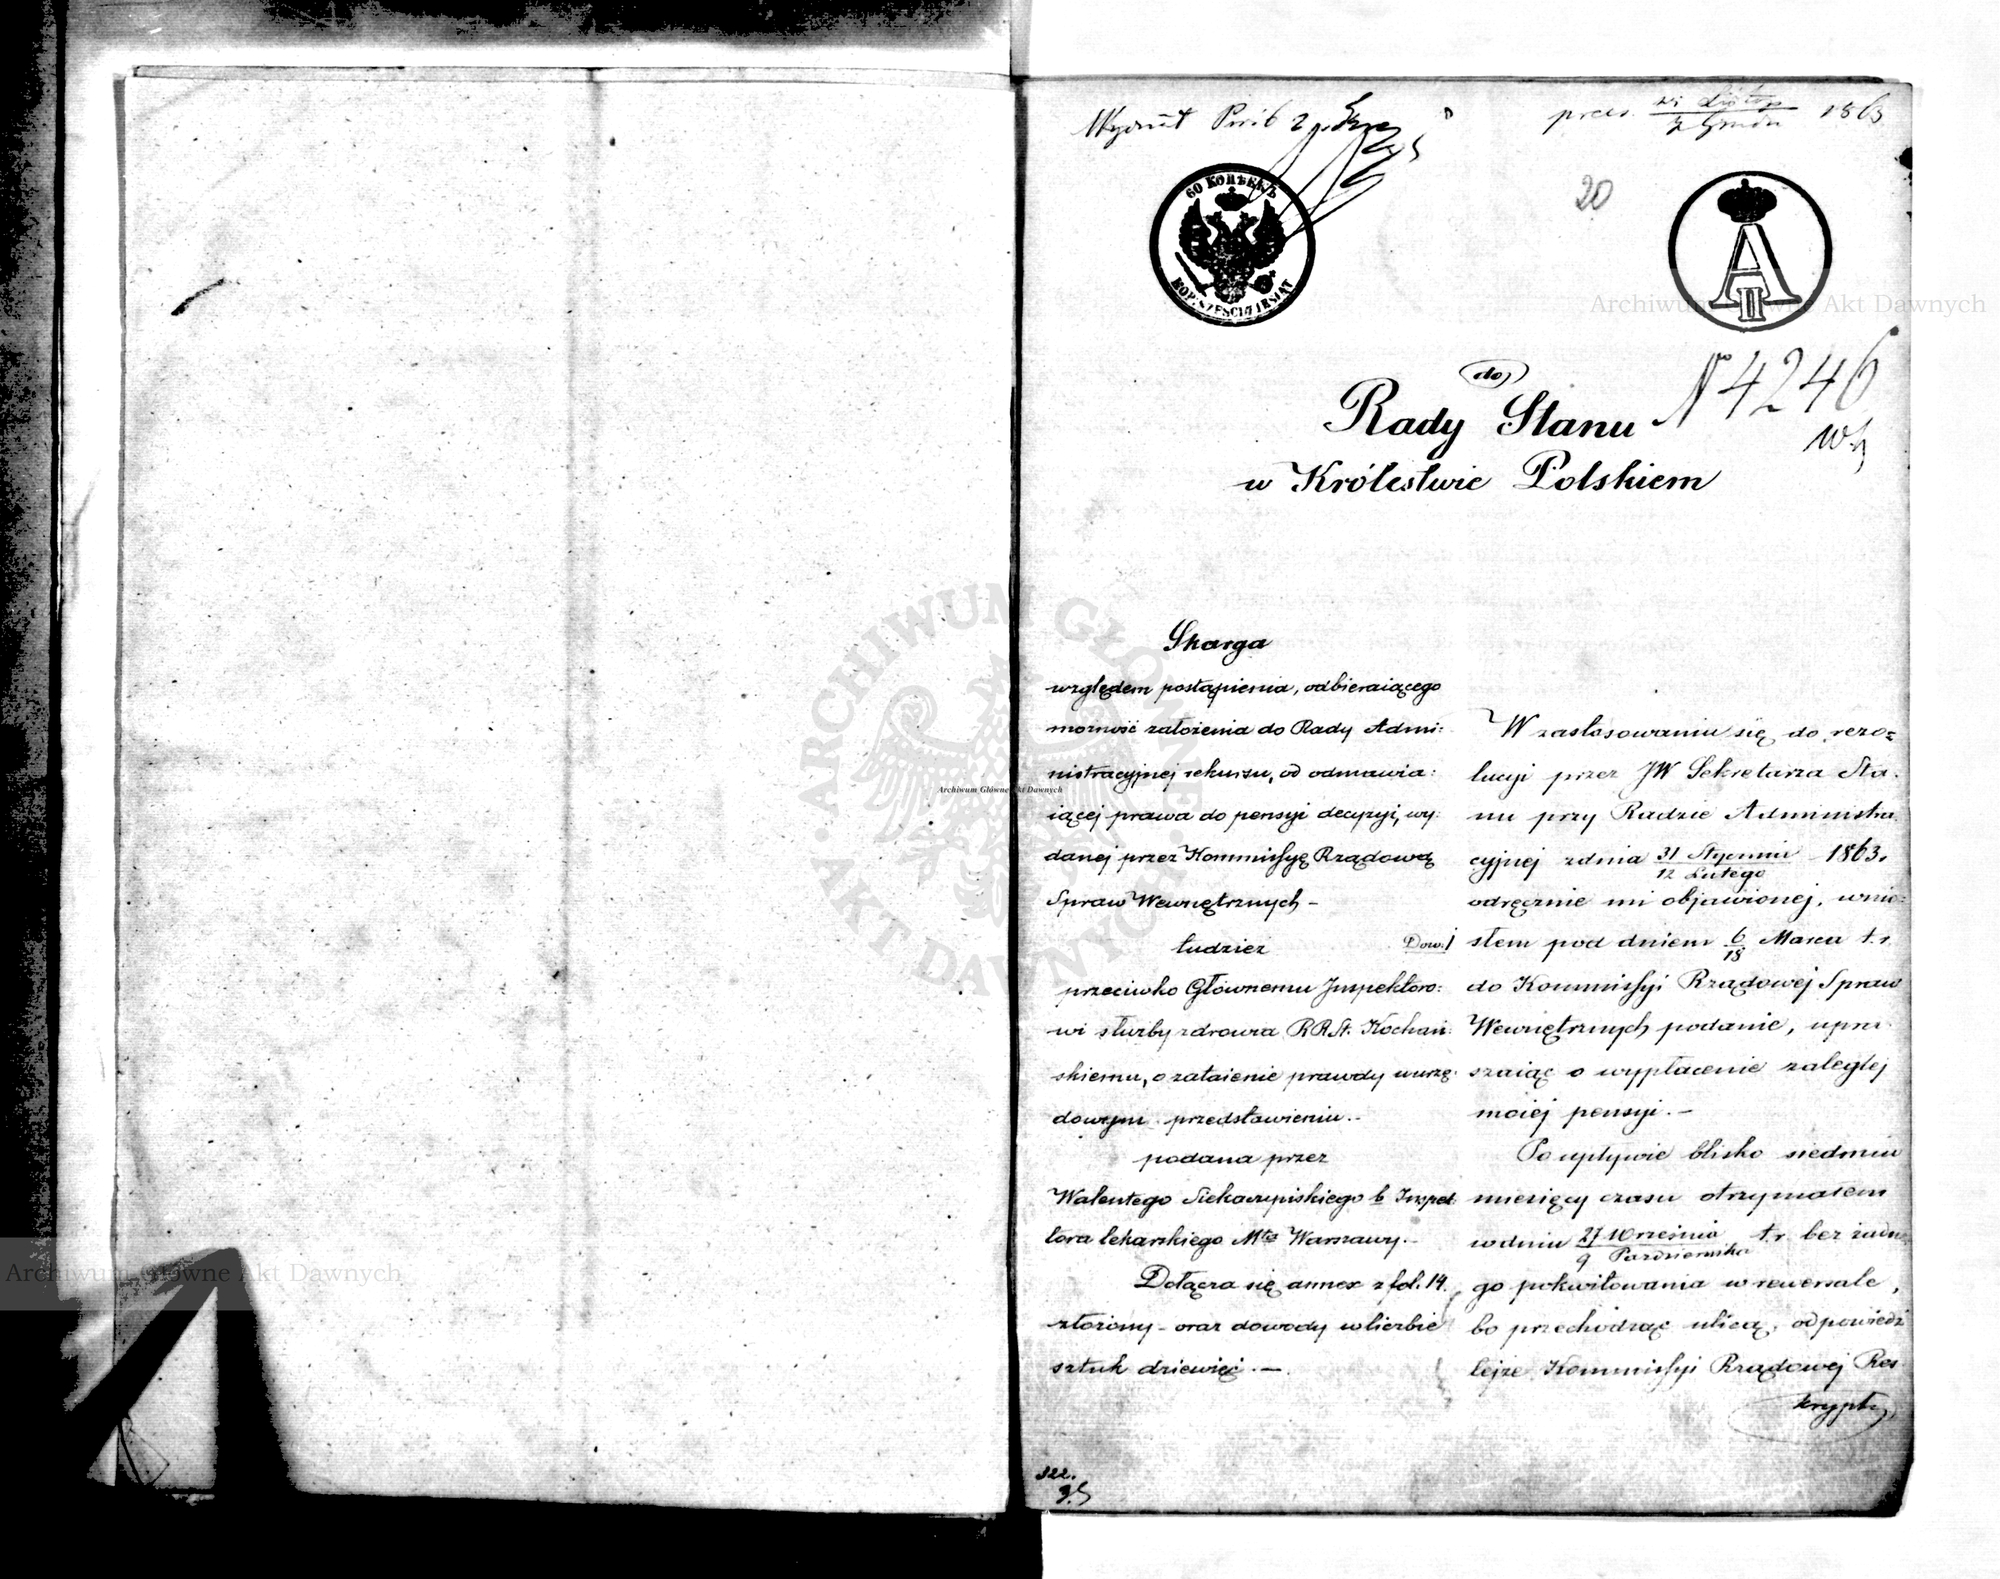 1863
60 КОПѢЕКЪ
KOP. SZEŚĆDZIESIĄT
20
A II
N 4246
do
Rady Stanu
w Królestwie Polskiem
Skarga
względem postąpienia, odbieraiącego
możność założenia do Rady Admi:
nistracyjnej rekursu, od odmawia:
iącej prawa do pensyi decyzyi, wy:
danej przez Kommissyę Rządową
Spraw Wewnętrznych -
tudzież
przeciwko Głównemu Inspektoro:
wi służby zdrowia RRSt. Kochań:
skiemu, o zataienie prawdy w urzę:
dowym przedstawieniu. -
podana przez
Walentego Siekaczyńskiego b Inspek
tora lekarskiego Mta Warszawy. -
Dołącza się annex z fol. 14.
złożony - oraz dowody w liczbie
sztuk dziewięć. -
W zastosowaniu się do rezo:
lucyi przez JW Sekretarza Sta:
nu przy Radzie Administra
cyjnej z dnia 31 Stycznia / 12 Lutego 1863.
odręcznie mi objawionej, wnio:
Dow: 1 słem pod dniem 6/18 Marca t. r.
do Kommissyi Rządowej Spraw
Wewnętrznych podanie, upra:
szaiąc o wypłacenie zaległej
moiej pensyi. -
Po upływie blisko siedmiu
miesięcy czasu otrzymałem
w dniu 27 Września / 9 Października t. r. bez żadne
go pokwitowania w rewersale,
bo przechodząc ulicą, odpowiedź
tejże Kommissyi Rządowej Res
kryptu,
Archiwum Główne Akt Dawnych
Archiwum Główne Akt Dawnych
Archiwum Główne Akt Dawnych
ARCHIWUM GŁÓWNE AKT DAWNYCH